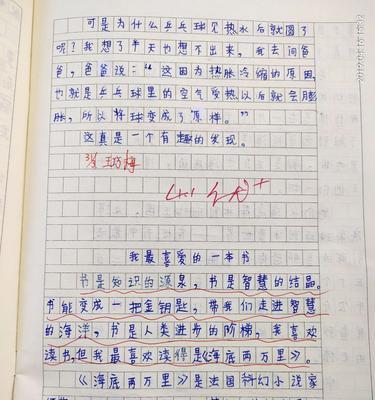 可是为什么乒乓球见热水后就圆了
呢？我想了半天也想不出来，我去问爸
爸，爸爸说：“这因为热胀冷缩的原因，
也就是乒乓球里的空气受热以后就会膨
胀，所以球变成了原样。”
这真是一个有趣的发现。
我最喜爱的一本书
书是知识的源泉，书是智慧的结晶。
书能变成一把金钥匙，带我们走进智慧
的海洋，书是人类进步的阶梯，我喜欢
读书，但我最喜欢读得是《海底两万里》。
《海底两万里》是法国科幻小说家